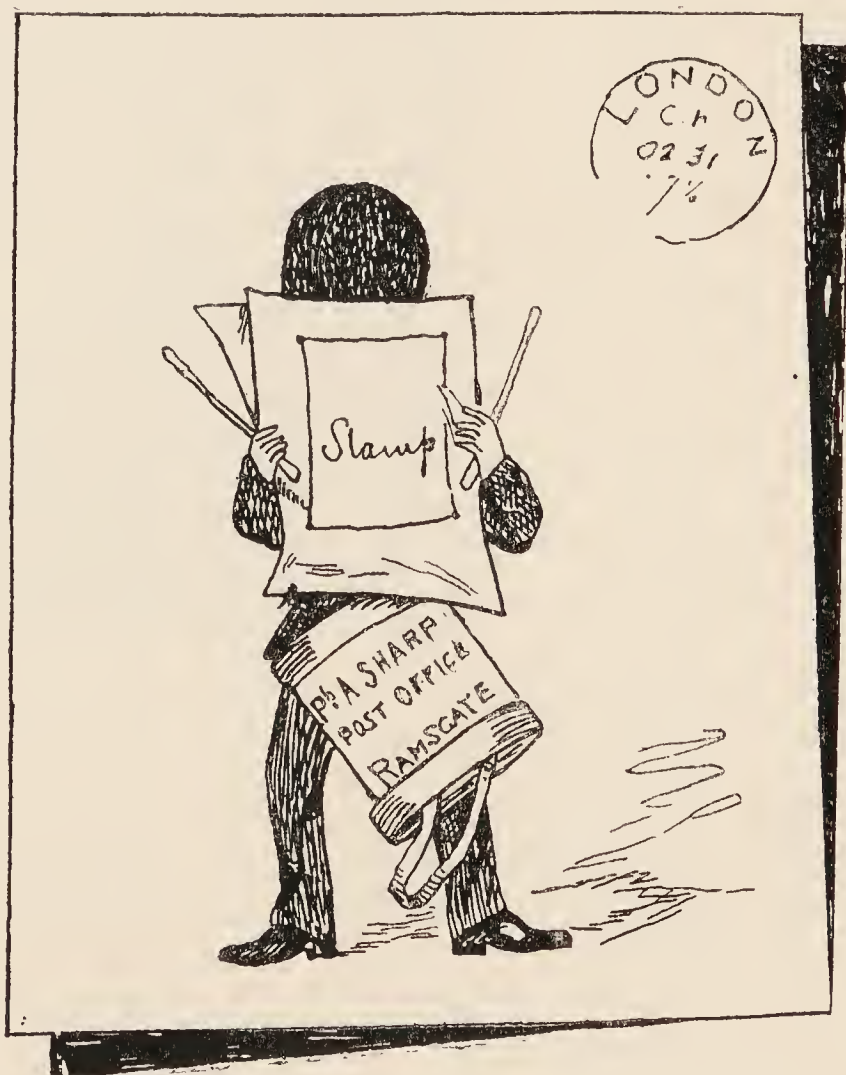 LONDON
C.h
02 31
7½
Stamp
Ph A SHARP
POST OFFICE
RAMSGATE